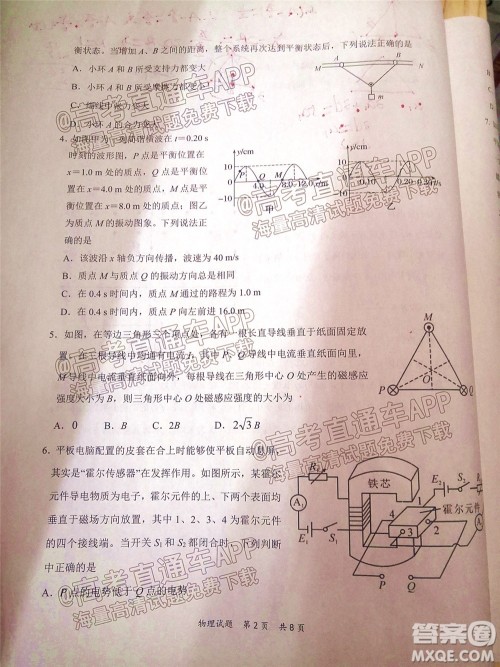 衡状态。当增加 A、B 之间的距离，整个系统再次达到平衡状态后，下列说法正确的是
A．小环 A 和 B 所受支持力都变大
B．小环 A 和 B 所受摩擦力都变大
D．小环 A 的合力
M A B N
m
t＝0.20 s
时刻的波形图，P 点是平衡位置在
x＝1.0 m 处的质点，Q 点是平衡位
置在 x＝8.0 m 处的质点，M
乙
为质点 M 的振动图象。下列说法正
确的是
y/cm
10
0
-10
y/cm
10
0
A．该波沿 x 轴负方向传播，波速为 40 m/s
B．质点 M 与质点 Q 的振动方向总是相同
C．在 0.4 s 时间内，质点 M 通过的路程为 1.0 m
D．在 0.4 s 时间内，质点 P 向右前进 16.0 m
5．如图，在等边三角形三个顶点处，各有一根长直导线垂直于纸面固定放
置，在三根导线中均通有电流 I，其中 P、Q 导线中电流垂直纸面向里，
M 导线中电流垂直纸面向外，每根导线在三角形中心 O 处产生的磁感
应强度大小为 B，则三角形中心 O 处的磁感应强度的大小为
A．0 B．B C．2B D．2√3 B
M
O
P Q
6．平板电脑配置的皮套在合上时能够使平板自动息屏，
其实是“霍尔传感器”在发挥作用。如图所示，某霍尔
元件导电物质为电子，霍尔元件的上、下两个表面均
垂直于磁场方向放置，其中 1、2、3、4 为霍尔元件
的四个接线端。当开关 S1 和 S2 都闭合时，下列判断
中正确的是
A．P 点的电势低于 Q 点的电势
R1
A1
E1 S1
铁芯
E2 S2
霍尔元件
4
1
3
2
P Q
物理试题 第 2 页 共 8 页
@高考直通车APP
海量高清试题免费下载
@高考直通车APP
海量高清试题免费下载
@高考直通车APP
海量高清试题免费下载
@高考直通车APP
海量高清试题免费下载
答案圈
MXQE.COM